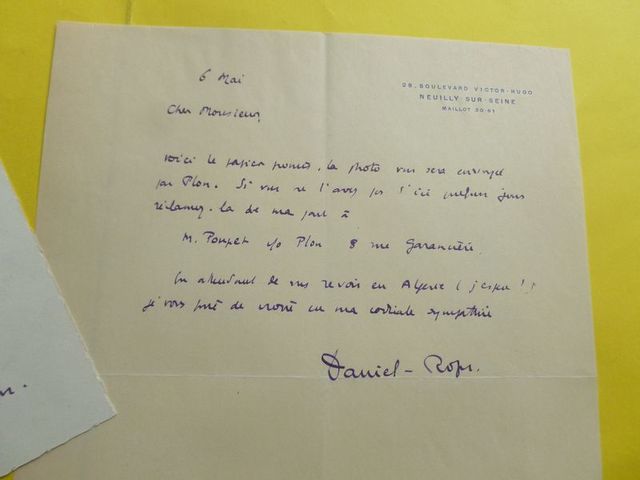 6 Mai
29, BOULEVARD VICTOR-HUGO
NEUILLY-SUR-SEINE
MAILLOT 30-61
Cher Monsieur,
voici le papier promis. La photo vous sera envoyée
par Plon. Si vous ne l'avez pas d'ici quelques jours
réclamez-la de ma part à
M. Poupet c/o Plon 8 rue Garancière.
En attendant de vous revoir en Algérie (j'espère!)
je vous prie de croire en ma cordiale sympathie
Daniel-Rops.